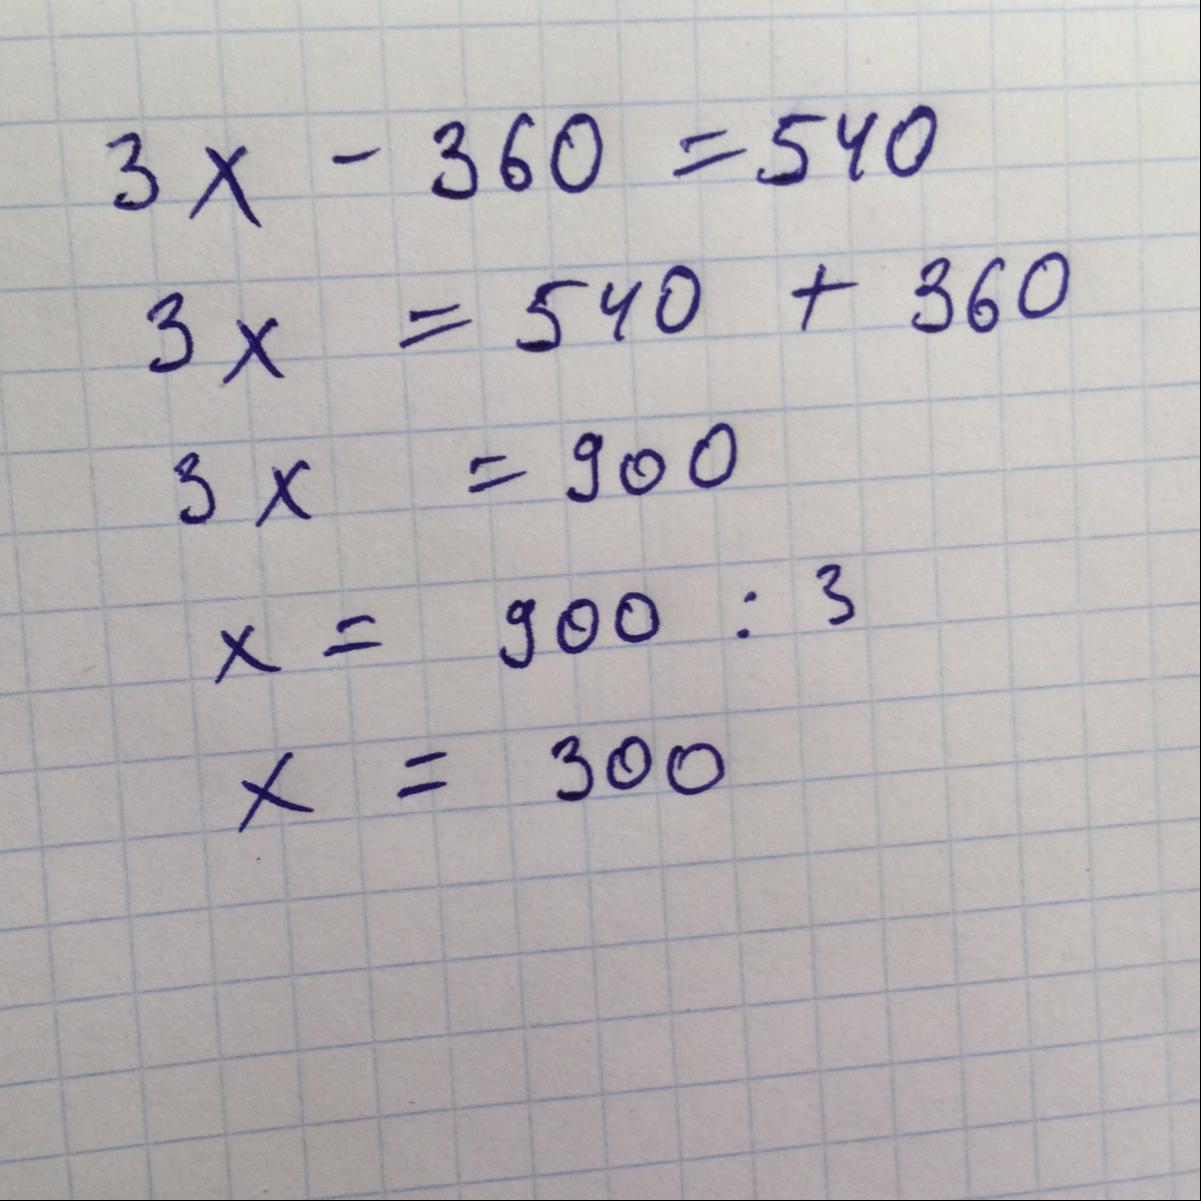 3x - 360 = 540
3x = 540 + 360
3x = 900
x = 900 : 3
x = 300